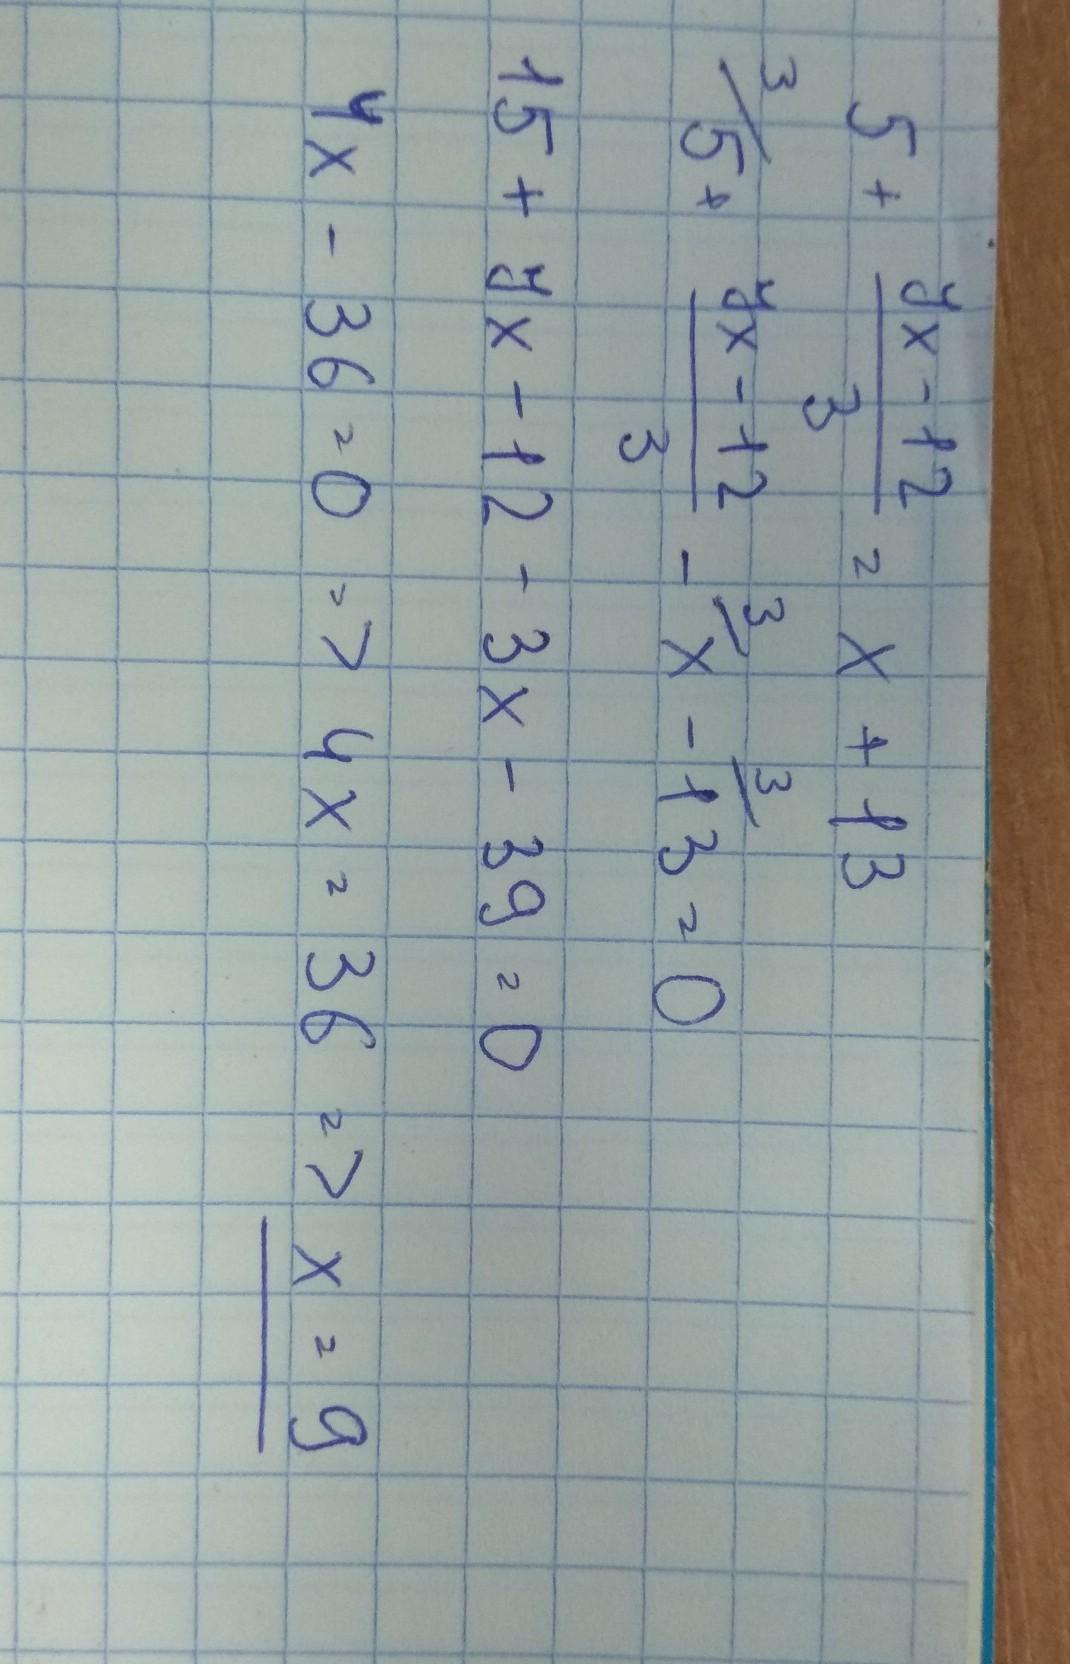 5 + \frac{7x - 12}{3} = x + 13
^{3/}5 + \frac{7x - 12}{3} - ^{3/}x - ^{3/}13 = 0
15 + 7x - 12 - 3x - 39 = 0
4x - 36 = 0 => 4x = 36 => x = 9